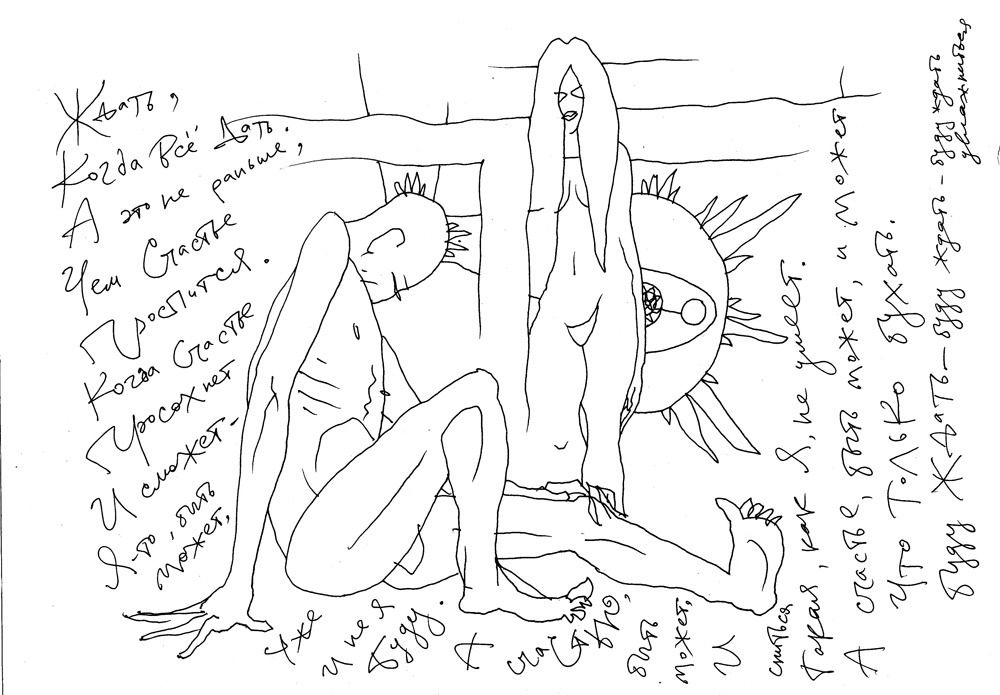 Ждать,
Когда всё дать.
А это не раньше,
Чем Счастье
Проспится.
Когда Счастье
Просохнет
И сможет -
Я-то, быть
может,
Уже
и не я
буду.
А
Сча
сть
ю,
быть
может,
И
сниться
Такая, как Я, не умеет.
А счастье, быть может, и может
Что только бухать.
Буду Ждать - буду ждать - буду ждать
увлажниться